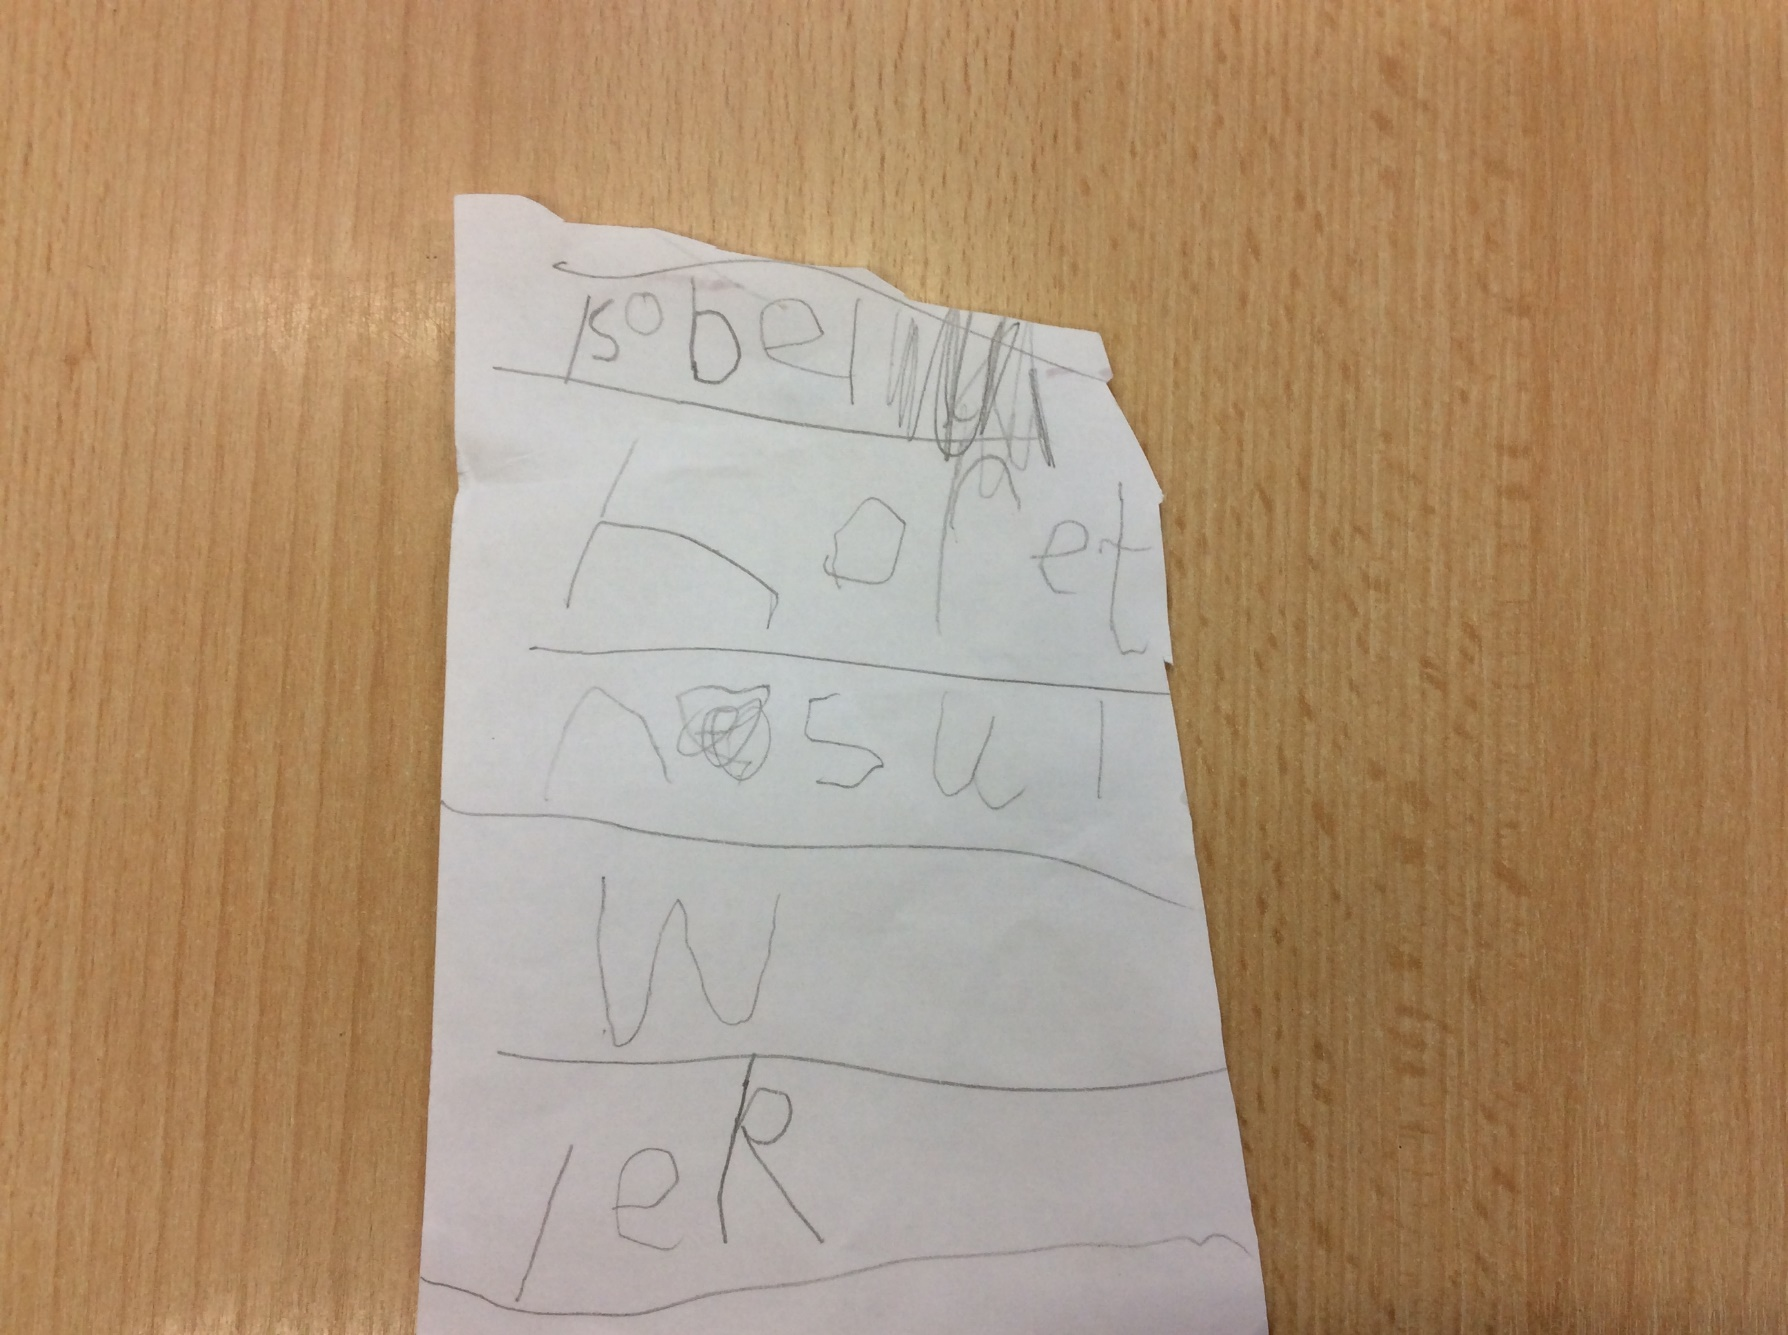 Isobel
hopet
nsul
w
leR